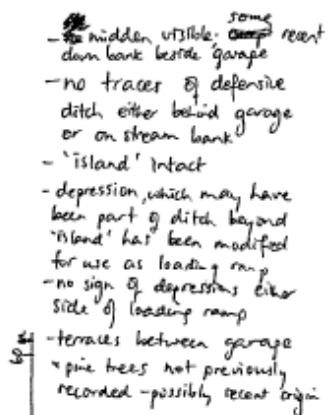 some
- midden visible. recent
down bank beside garage
- no traces of defensive
ditch either behind garage
or on stream bank
- 'island' intact
- depression, which may have
been part of ditch beyond
'island' has been modified
for use as loading ramp
- no sign of depressions either
side of loading ramp
- terraces between garage
+ pine trees not previously
recorded - possibly recent origin